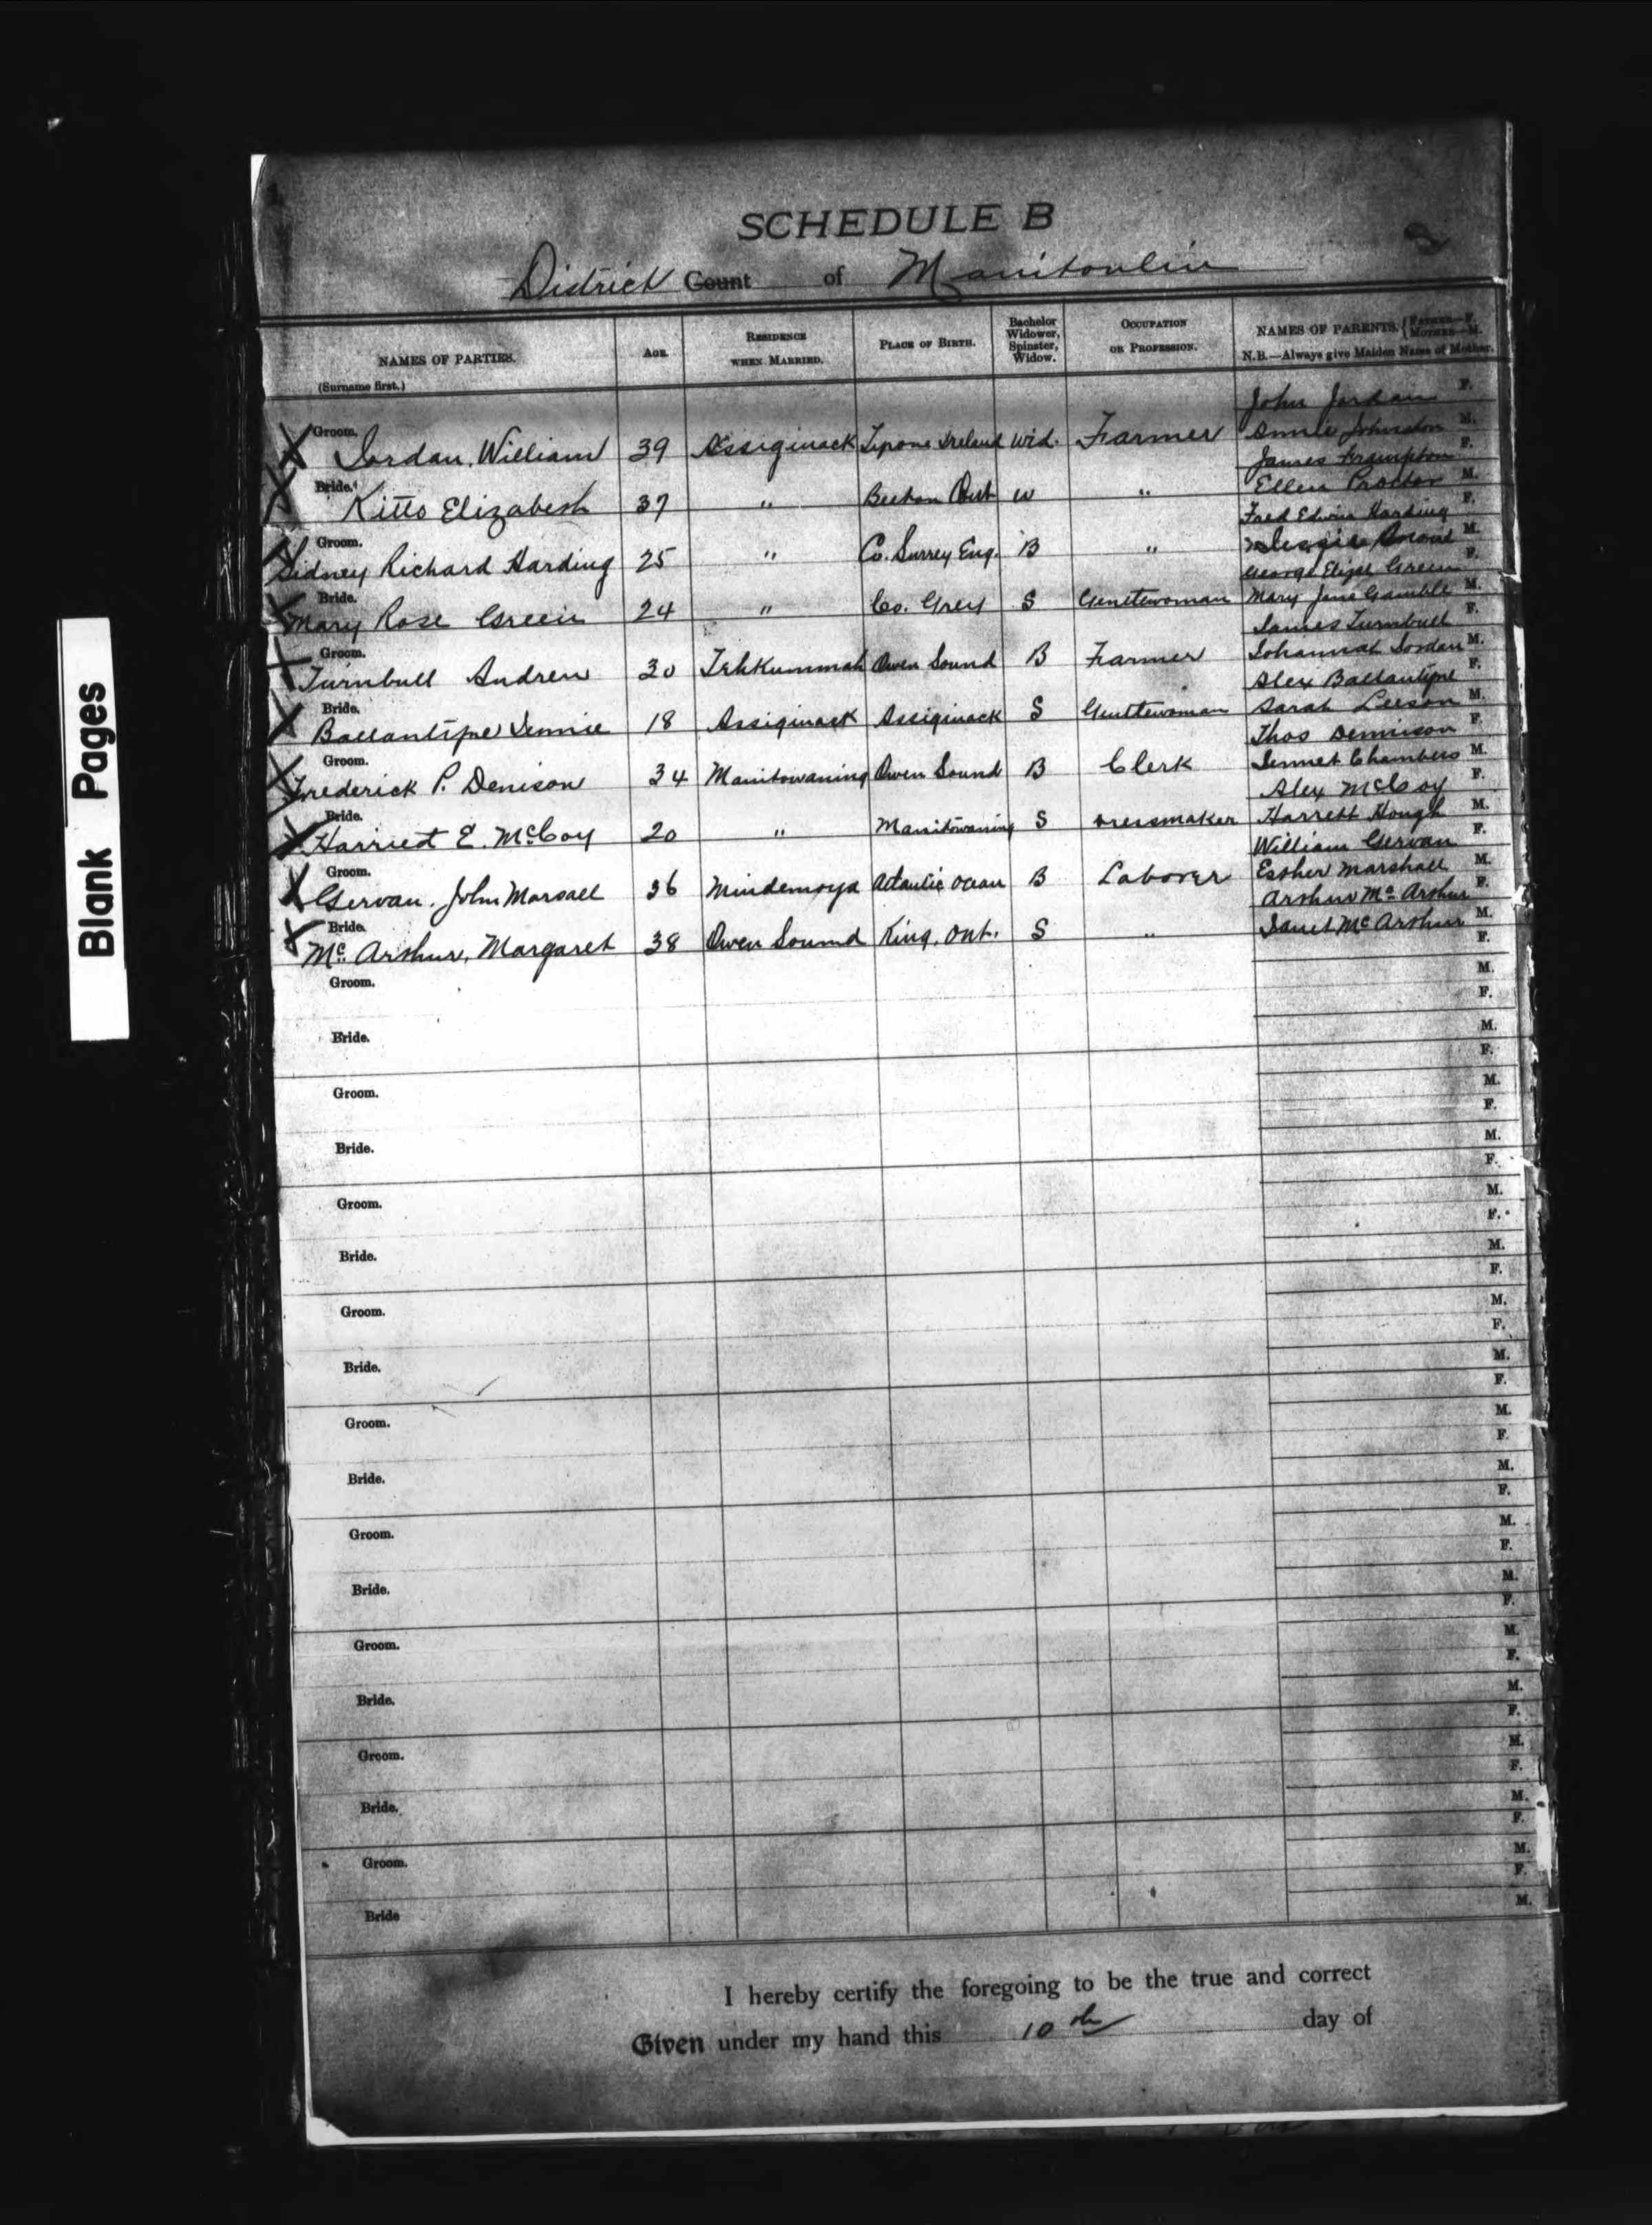 Blank Pages
SCHEDULE B
District Count of Manitoulin
NAMES OF PARTIES. (Surname first.) AGE. RESIDENCE WHEN MARRIED. PLACE OF BIRTH. Bachelor Widower, Spinster, Widow. OCCUPATION OR PROFESSION. NAMES OF PARENTS. { FATHER—F. MOTHER—M. N.B.—Always give Maiden Name of Mother.
John Jordan F.
Groom. Jordan, William 39 Assiginack Tyrone Ireland Wid. Farmer Annie Johnston M.
James Frampton F.
Bride. Kitto Elizabeth 37 " Beeton Ont W " Ellen Proctor M.
Fred Edwin Harding F.
Groom. Sidney Richard Harding 25 " Co. Surrey Eng. B " M.
George Elijah Green F.
Bride. Mary Rose Green 24 " Co. Grey S Gentlewoman Mary Jane Gamble M.
James Turnbull F.
Groom. Turnbull Andrew 30 Tehkummah Owen Sound B Farmer Johannah Jordan M.
Alex Ballantyne F.
Bride. Ballantyne Jennie 18 Assiginack Assiginack S Gentlewoman Sarah Leeson M.
Thos Dennison F.
Groom. Frederick P. Denison 34 Manitowaning Owen Sound B Clerk Jennet Chambers M.
Alex McCoy F.
Bride. Harriet E. McCoy 20 " Manitowaning S Dressmaker Harrett Hough M.
William Gervan F.
Groom. Gervan, John Marsall 36 Mindemoya Atlantic Ocean B Laborer Esther Marshall M.
Arthur McArthur F.
Bride. McArthur, Margaret 38 Owen Sound King, Ont. S " Janet McArthur M.
F.
Groom. M.
F.
Bride. M.
F.
Groom. M.
F.
Bride. M.
F.
Groom. M.
F.
Bride. M.
F.
Groom. M.
F.
Bride. M.
F.
Groom. M.
F.
Bride. M.
F.
Groom. M.
F.
Bride. M.
F.
Groom. M.
F.
Bride. M.
F.
Groom. M.
F.
Bride. M.
F.
Groom. M.
F.
Bride M.
I hereby certify the foregoing to be the true and correct
Given under my hand this 10th day of